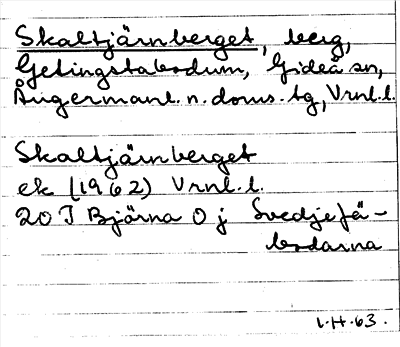 Skaltjärnberget, berg,
Getingstabodum, Gideå sn,
Ångermanl. n. doms. tg, Vrnl. l.
Skaltjärnberget
ek (1962) Vrnl. l.
20 J Björna O j Svedjefä-
bodarna
L.H. 63.